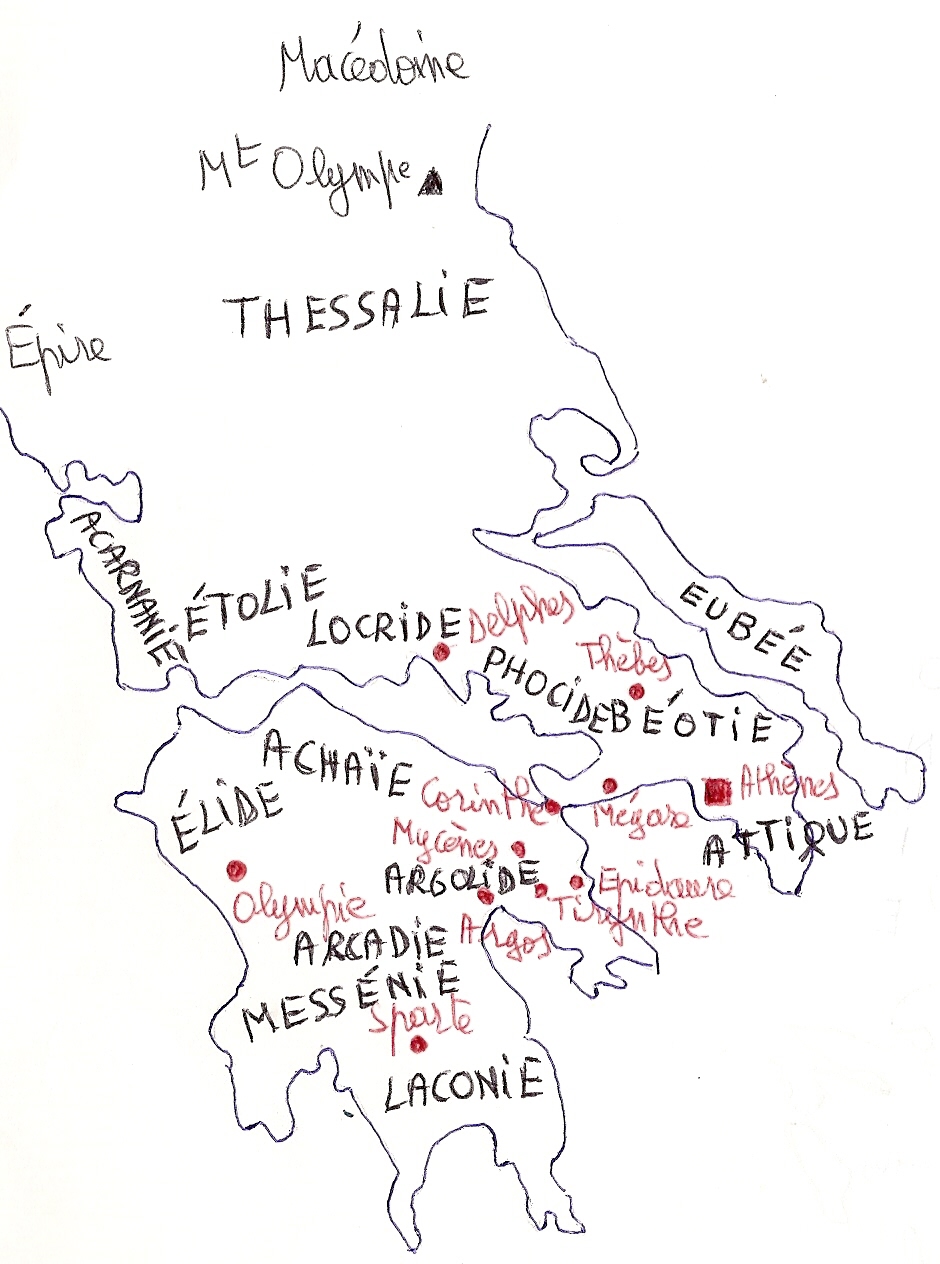 Macédoine
Mt Olympe
THESSALIE
Épire
ACARNANIE
ÉTOLIE
LOCRIDE
Delphes
EUBÉE
PHOCIDE
Thèbes
BÉOTIE
ACHAÏE
ÉLIDE
Corinthe
Mégare
Athènes
ATTIQUE
Mycènes
ARGOLIDE
Epidaure
Tirynthe
Olympie
ARCADIE
Argos
MESSÉNIE
Sparte
LACONIE